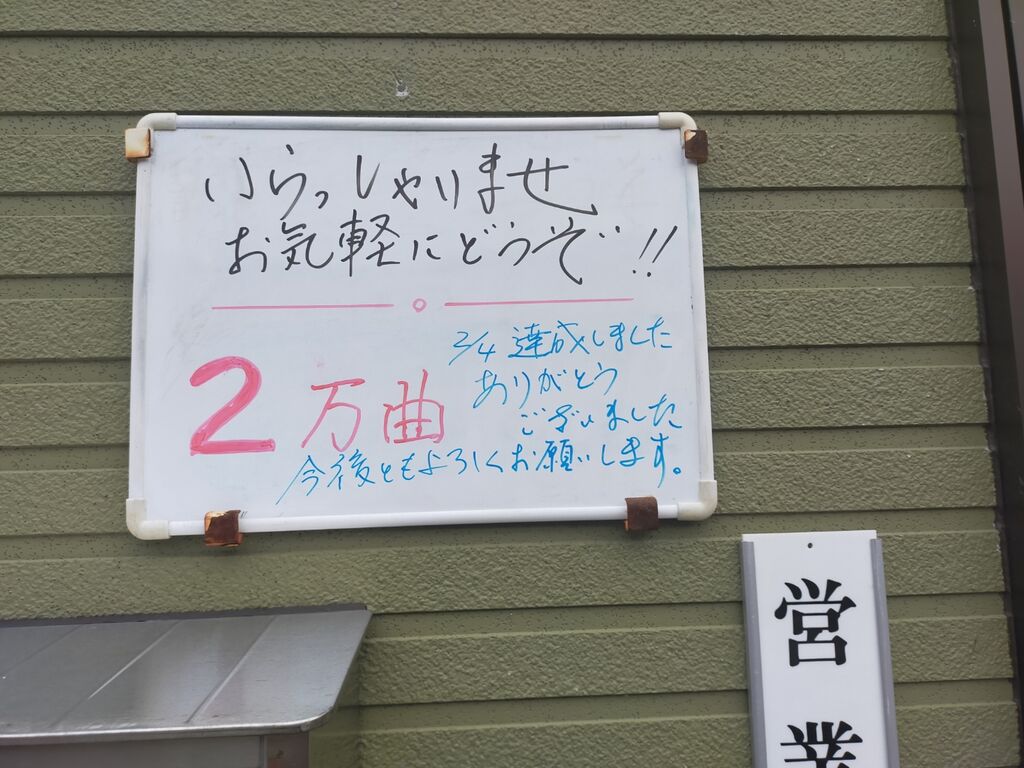 いらっしゃりませ
お気軽にどうぞ!!
2万曲
3/4 達成しました
ありがとう
ございました
今後ともよろしくお願いします。
営業